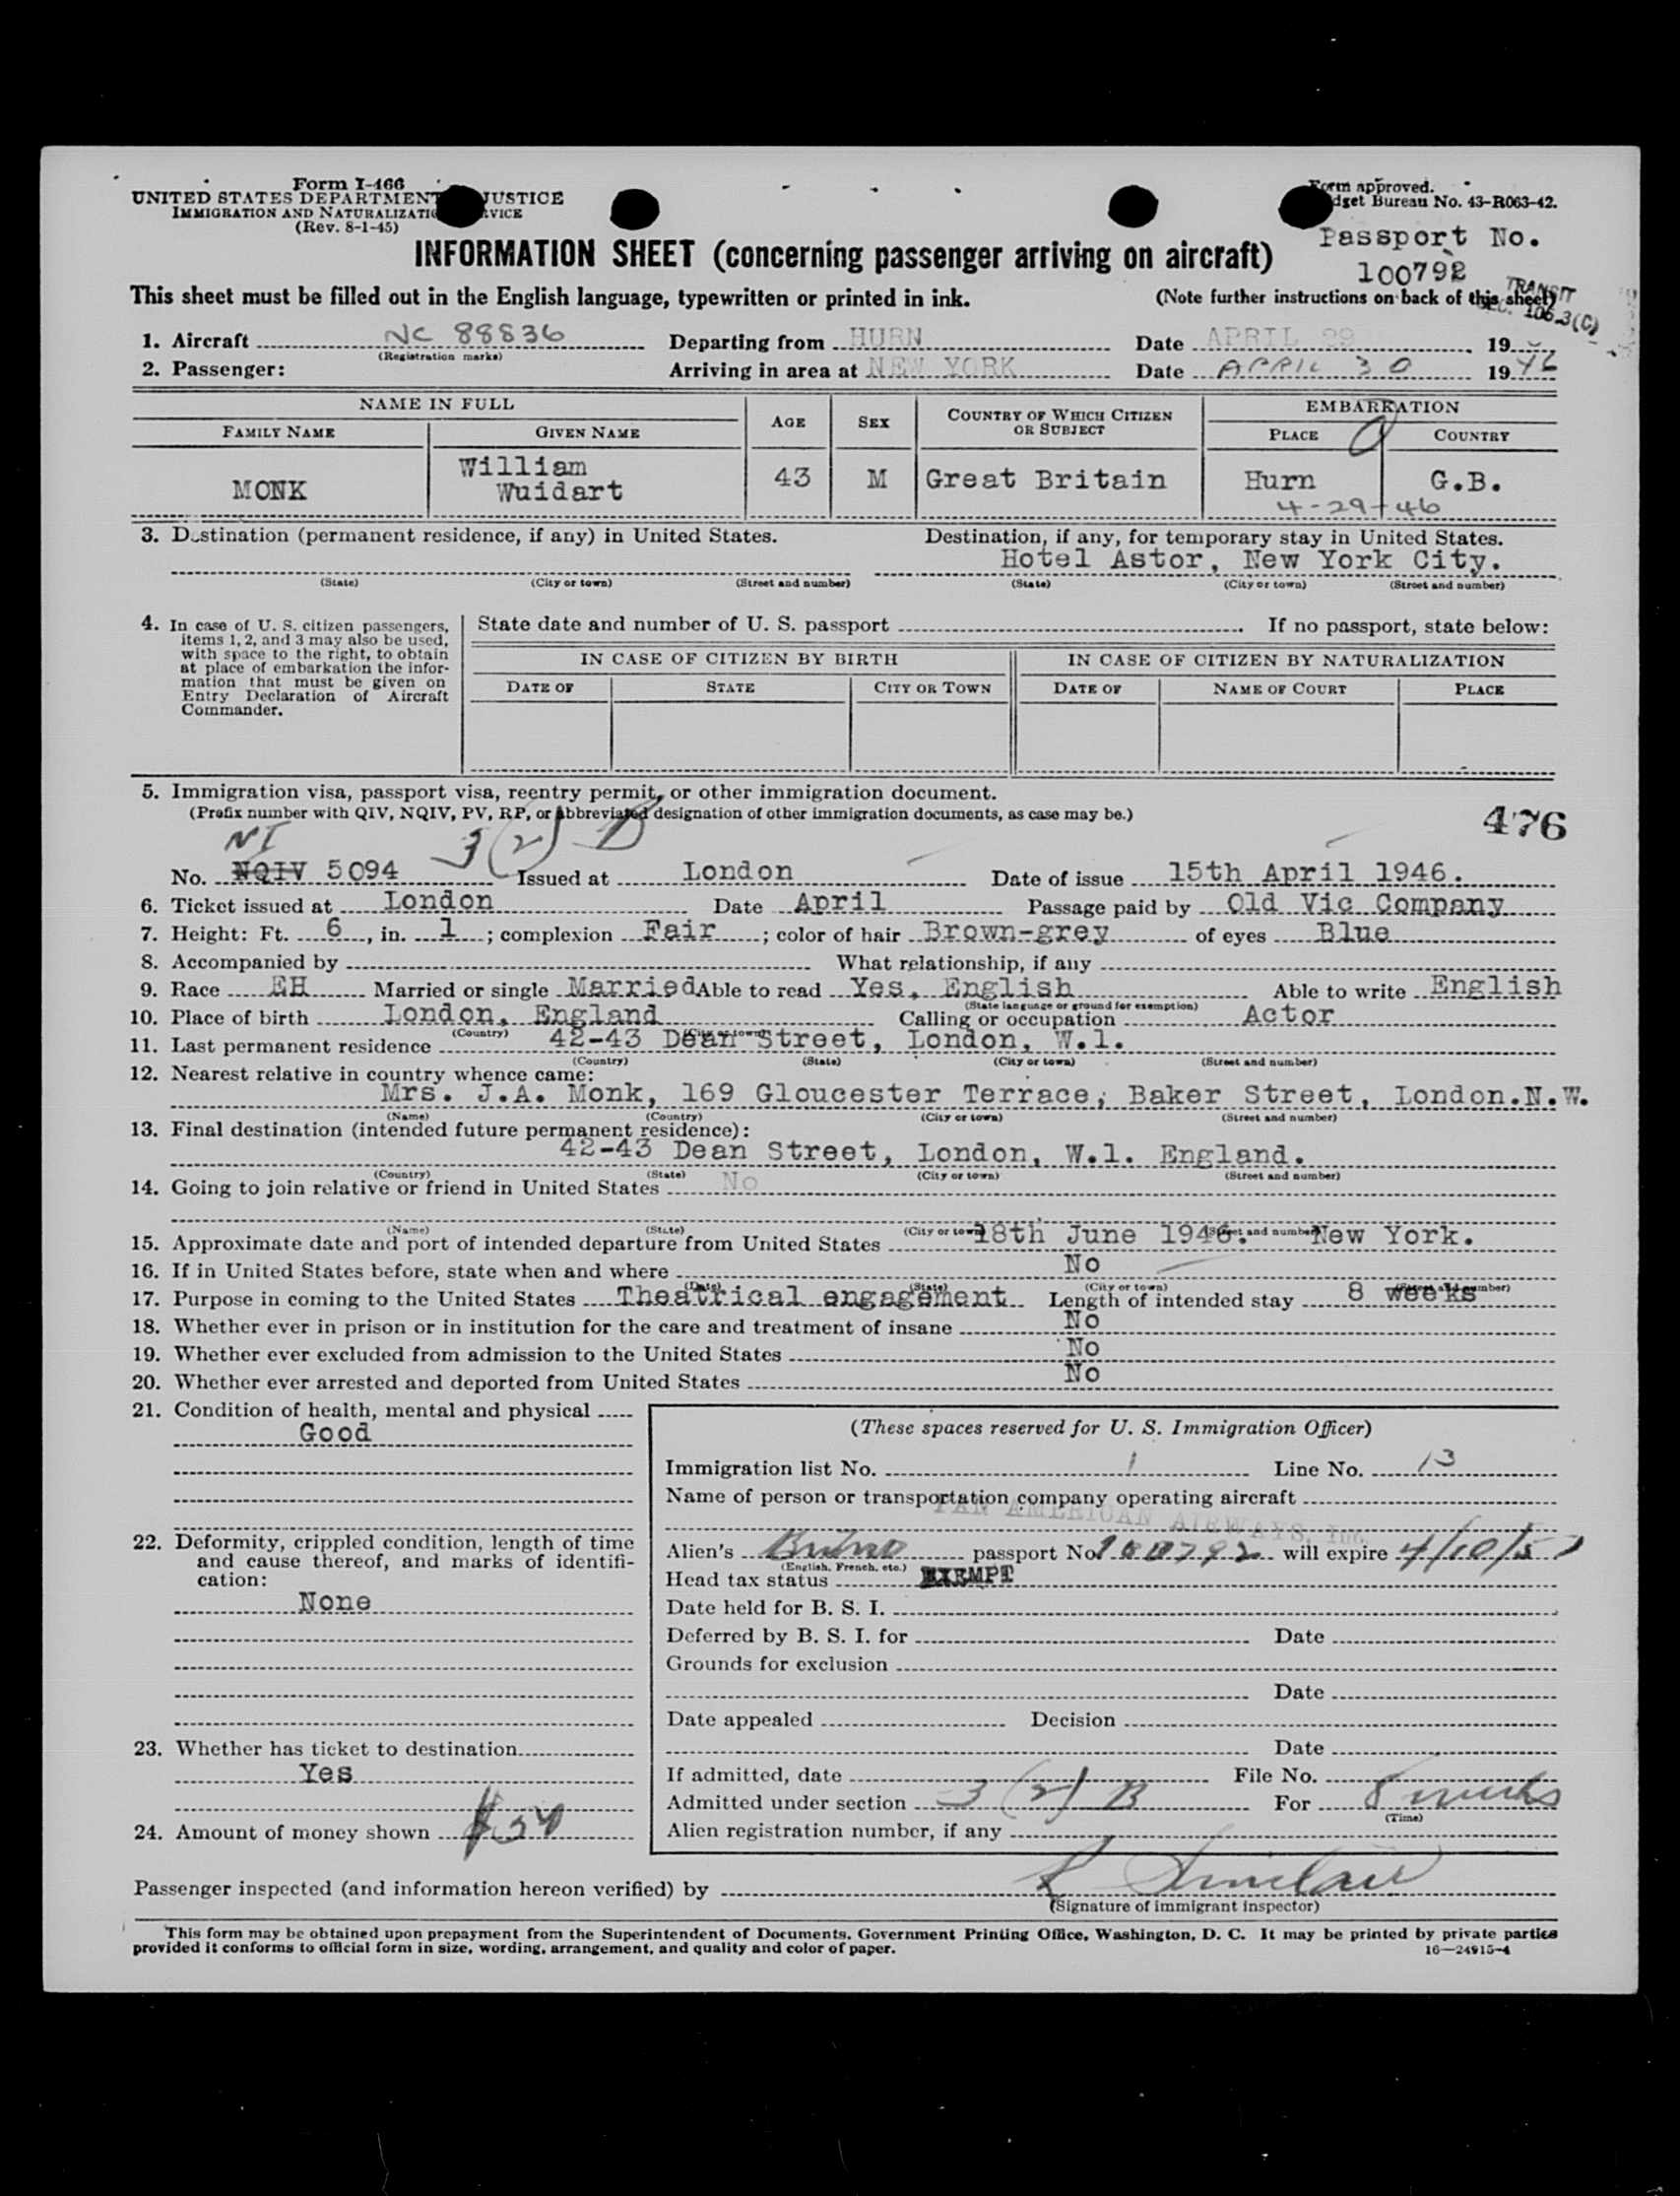 Form I-466
UNITED STATES DEPARTMENT JUSTICE
IMMIGRATION AND NATURALIZATION SERVICE
(Rev. 8-1-45)
Form approved.
Budget Bureau No. 43-R063-42.
Passport No.
100792
INFORMATION SHEET (concerning passenger arriving on aircraft)
TRANSIT
This sheet must be filled out in the English language, typewritten or printed in ink. (Note further instructions on back of this sheet)
SEC. 106.3(C)
1. Aircraft NC 88836 Departing from HURN Date APRIL 29 19
(Registration marks)
2. Passenger: Arriving in area at NEW YORK Date APRIL 30 1946
NAME IN FULL AGE SEX COUNTRY OF WHICH CITIZEN OR SUBJECT EMBARKATION
FAMILY NAME GIVEN NAME PLACE COUNTRY
MONK William Wuidart 43 M Great Britain Hurn G.B.
4-29-46
3. Destination (permanent residence, if any) in United States. Destination, if any, for temporary stay in United States.
Hotel Astor, New York City.
(State) (City or town) (Street and number) (State) (City or town) (Street and number)
4. In case of U. S. citizen passengers, items 1, 2, and 3 may also be used, with space to the right, to obtain at place of embarkation the information that must be given on Entry Declaration of Aircraft Commander.
State date and number of U. S. passport If no passport, state below:
IN CASE OF CITIZEN BY BIRTH IN CASE OF CITIZEN BY NATURALIZATION
DATE OF STATE CITY OR TOWN DATE OF NAME OF COURT PLACE
5. Immigration visa, passport visa, reentry permit, or other immigration document.
(Prefix number with QIV, NQIV, PV, RP, or abbreviated designation of other immigration documents, as case may be.)
476
NI 3(2) B
No. NQIV 5094 Issued at London Date of issue 15th April 1946.
6. Ticket issued at London Date April Passage paid by Old Vic Company
7. Height: Ft. 6, in. 1; complexion Fair; color of hair Brown-grey of eyes Blue
8. Accompanied by What relationship, if any
9. Race EH Married or single Married Able to read Yes, English Able to write English
(State language or ground for exemption)
10. Place of birth London, England Calling or occupation Actor
(Country) (City or town)
11. Last permanent residence 42-43 Dean Street, London, W.1.
(Country) (State) (City or town) (Street and number)
12. Nearest relative in country whence came:
Mrs. J.A. Monk, 169 Gloucester Terrace, Baker Street, London.N.W.
(Name) (Country) (City or town) (Street and number)
13. Final destination (intended future permanent residence):
42-43 Dean Street, London, W.1. England.
(Country) (State) (City or town) (Street and number)
14. Going to join relative or friend in United States No
(Name) (State) (City or town) (Street and number)
15. Approximate date and port of intended departure from United States 18th June 1946. New York.
16. If in United States before, state when and where No
(Date) (State) (City or town) (Street and number)
17. Purpose in coming to the United States Theatrical engagement Length of intended stay 8 weeks
18. Whether ever in prison or in institution for the care and treatment of insane No
19. Whether ever excluded from admission to the United States No
20. Whether ever arrested and deported from United States No
21. Condition of health, mental and physical
Good
22. Deformity, crippled condition, length of time and cause thereof, and marks of identification:
None
23. Whether has ticket to destination
Yes
24. Amount of money shown $54
(These spaces reserved for U. S. Immigration Officer)
Immigration list No. 1 Line No. 13
Name of person or transportation company operating aircraft
PAN AMERICAN AIRWAYS, Inc.
Alien's passport No. 100792 will expire 4/10/51
(English, French, etc.)
Head tax status EXEMPT
Date held for B. S. I.
Deferred by B. S. I. for Date
Grounds for exclusion
Date
Date appealed Decision
Date
If admitted, date File No.
Admitted under section 3(2) B For 8 weeks
(Time)
Alien registration number, if any
Passenger inspected (and information hereon verified) by Sinclair
(Signature of immigrant inspector)
This form may be obtained upon prepayment from the Superintendent of Documents, Government Printing Office, Washington, D. C. It may be printed by private parties
provided it conforms to official form in size, wording, arrangement, and quality and color of paper. 16—24915-4